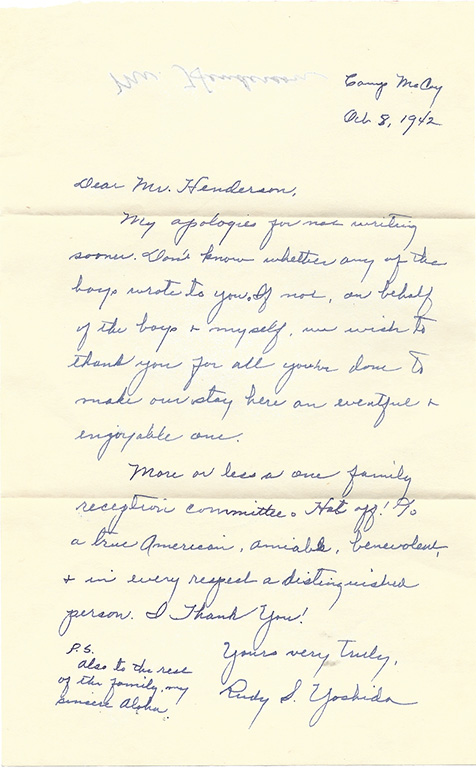 Mr. Henderson
Camp McCoy
Oct 8, 1942
Dear Mr. Henderson,
My apologies for not writing
sooner. Don't know whether any of the
boys wrote to you. If not, on behalf
of the boys + myself, we wish to
thank you for all you've done to
make our stay here an eventful +
enjoyable one.
More or less a one family
reception committee. Hat off! To
a true American, amiable, benevolent,
+ in every respect a distinguished
person. I Thank You!
Yours very truly,
Rudy S. Yoshida
P.S.
Also to the rest
of the family, my
sincere Aloha.